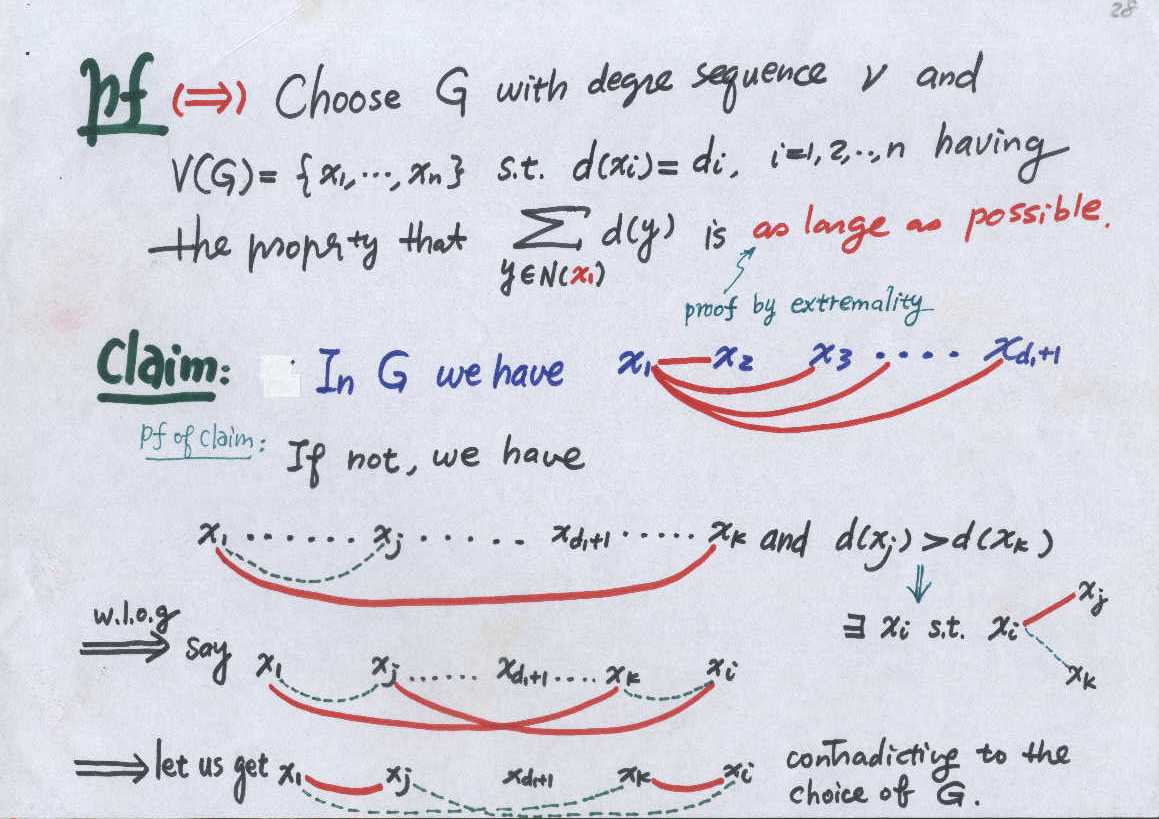 28
pf (⇒) Choose G with degre sequence v and
V(G) = {x₁, ···, xₙ} s.t. d(xᵢ) = dᵢ, i=1, 2, .., n having
the property that ∑_{y∈N(x₁)} d(y) is as large as possible.
proof by extremality
Claim: In G we have x₁ x₂ x₃ ···· x_{d₁+1}
pf of claim: If not, we have
x₁ ······ x_j ······ x_{d₁+1} ····· x_k and d(x_j) > d(x_k)
⇓
w.l.o.g
∃ xᵢ s.t. xᵢ x_j x_k
⟹ say x₁ x_j ······ x_{d₁+1} ···· x_k xᵢ
⟹ let us get x₁ x_j x_{d₁+1} x_k xᵢ contradicting to the
choice of G.